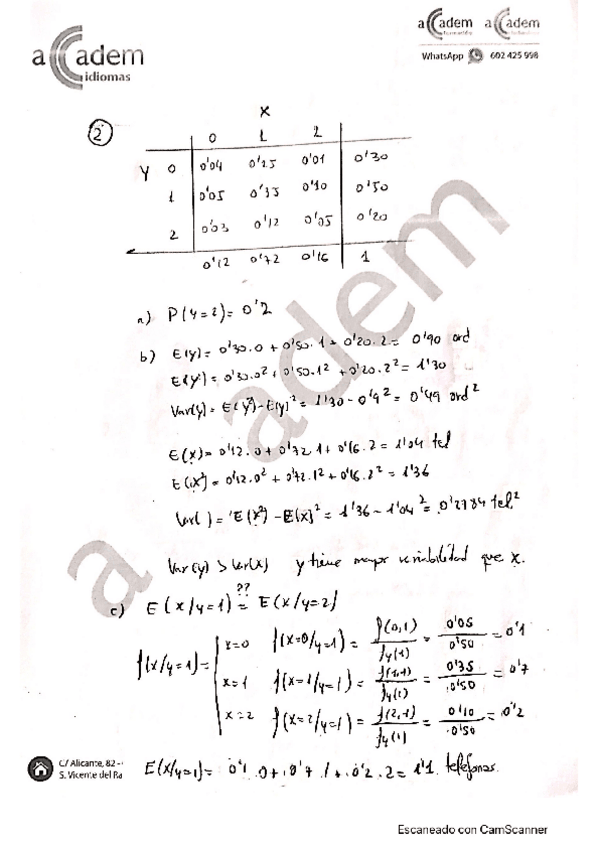 academ
idiomas
academ academ
WhatsApp 602 425 998
X
2
0 1 2
Y 0 0'04 0'25 0'01 0'30
1 0'05 0'35 0'10 0'50
2 0'03 0'12 0'05 0'20
0'12 0'72 0'16 1
a) P(Y=2) = 0'2
b) E(y) = 0'30.0 + 0'50.1 + 0'20.2 = 0'90 ord
E(y²) = 0'30.0² + 0'50.1² + 0'20.2² = 1'30
Var(y) = E(y²) - E(y)² = 1'30 - 0'9² = 0'49 ord²
E(x) = 0'12.0 + 0'72.1 + 0'16.2 = 1'04 tel
E(x²) = 0'12.0² + 0'72.1² + 0'16.2² = 1'36
Var( ) = E(x²) - E(x)² = 1'36 - 1'04² = 0'2784 tel²
Var(y) > Var(x) y tiene mayor variabilidad que x.
??
c) E(x/y=1) = E(x/y=2)
f(x/y=1) =
x=0 f(x=0/y=1) = f(0,1)/fy(1) = 0'05/0'50 = 0'1
x=1 f(x=1/y=1) = f(1,1)/fy(1) = 0'35/0'50 = 0'7
x=2 f(x=2/y=1) = f(2,1)/fy(1) = 0'10/0'50 = 0'2
E(x/y=1) = 0'1.0 + 0'7.1 + 0'2.2 = 1'1 telefonos.
C/ Alicante, 82 -
S. Vicente del Ra
academ
Escaneado con CamScanner